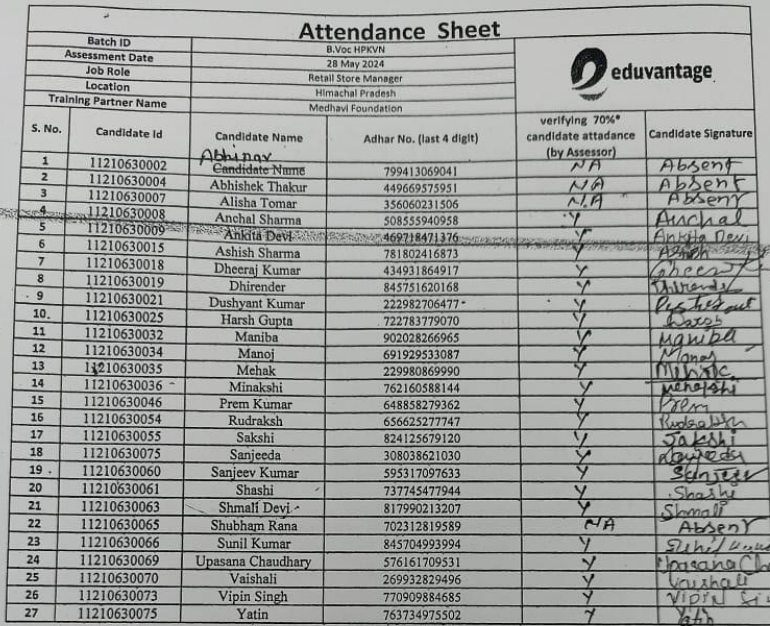 Attendance Sheet
Batch ID B.Voc HPKVN
Assessment Date 28 May 2024
Job Role Retail Store Manager
Location Himachal Pradesh
Training Partner Name Medhavi Foundation
eduvantage
S. No. Candidate Id Candidate Name Adhar No. (last 4 digit) verifying 70%* candidate attadance (by Assessor) Candidate Signature
Abhinav
1 11210630002 Candidate Name 799413069041 NA Absent
2 11210630004 Abhishek Thakur 449669575951 NA Absent
3 11210630007 Alisha Tomar 356060231506 N.A Absent
4 11210630008 Anchal Sharma 508555940958 Y Anchal
5 11210630009 Ankita Devi 469718471376 Y Ankita Devi
6 11210630015 Ashish Sharma 781802416873 Y Ashish
7 11210630018 Dheeraj Kumar 434931864917 Y
8 11210630019 Dhirender 845751620168 Y Dhirender
9 11210630021 Dushyant Kumar 222982706477 Y
10. 11210630025 Harsh Gupta 722783779070 Y Harsh
11 11210630032 Maniba 902028266965 Y Maniba
12 11210630034 Manoj 691929533087 Y Manoj
13 11210630035 Mehak 229980869990 Y
14 11210630036 Minakshi 762160588144 Y
15 11210630046 Prem Kumar 648858279362 Y Prem
16 11210630054 Rudraksh 656625277747 Y Rudraksh
17 11210630055 Sakshi 824125679120 Y Sakshi
18 11210630075 Sanjeeda 308038621030 Y
19 11210630060 Sanjeev Kumar 595317097633 Y Sanjeev
20 11210630061 Shashi 737745477944 Y Shashi
21 11210630063 Shmali Devi 817990213207 Y Shmali
22 11210630065 Shubham Rana 702312819589 NA Absent
23 11210630066 Sunil Kumar 845704993994 Y
24 11210630069 Upasana Chaudhary 576161709531 Y Upasana
25 11210630070 Vaishali 269932829496 Y Vaishali
26 11210630073 Vipin Singh 770909884685 Y Vipin
27 11210630075 Yatin 763734975502 Y Yatin